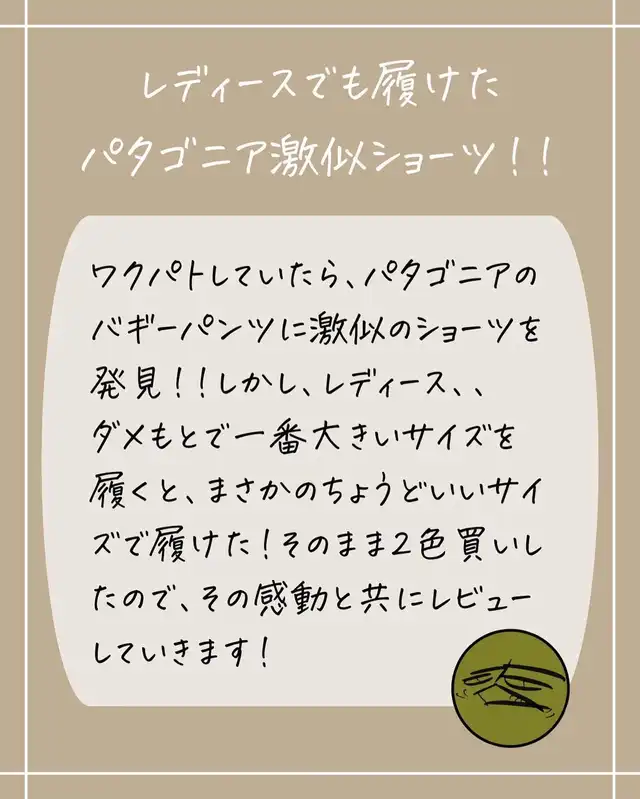 レディースでも履けた
パタゴニア激似ショーツ！！
ワクパトしていたら、パタゴニアの
バギーパンツに激似のショーツを
発見！！しかし、レディース、、
ダメもとで一番大きいサイズを
履くと、まさかのちょうどいいサイ
ズで履けた！そのまま2色買いし
たので、その感動と共にレビュー
していきます！